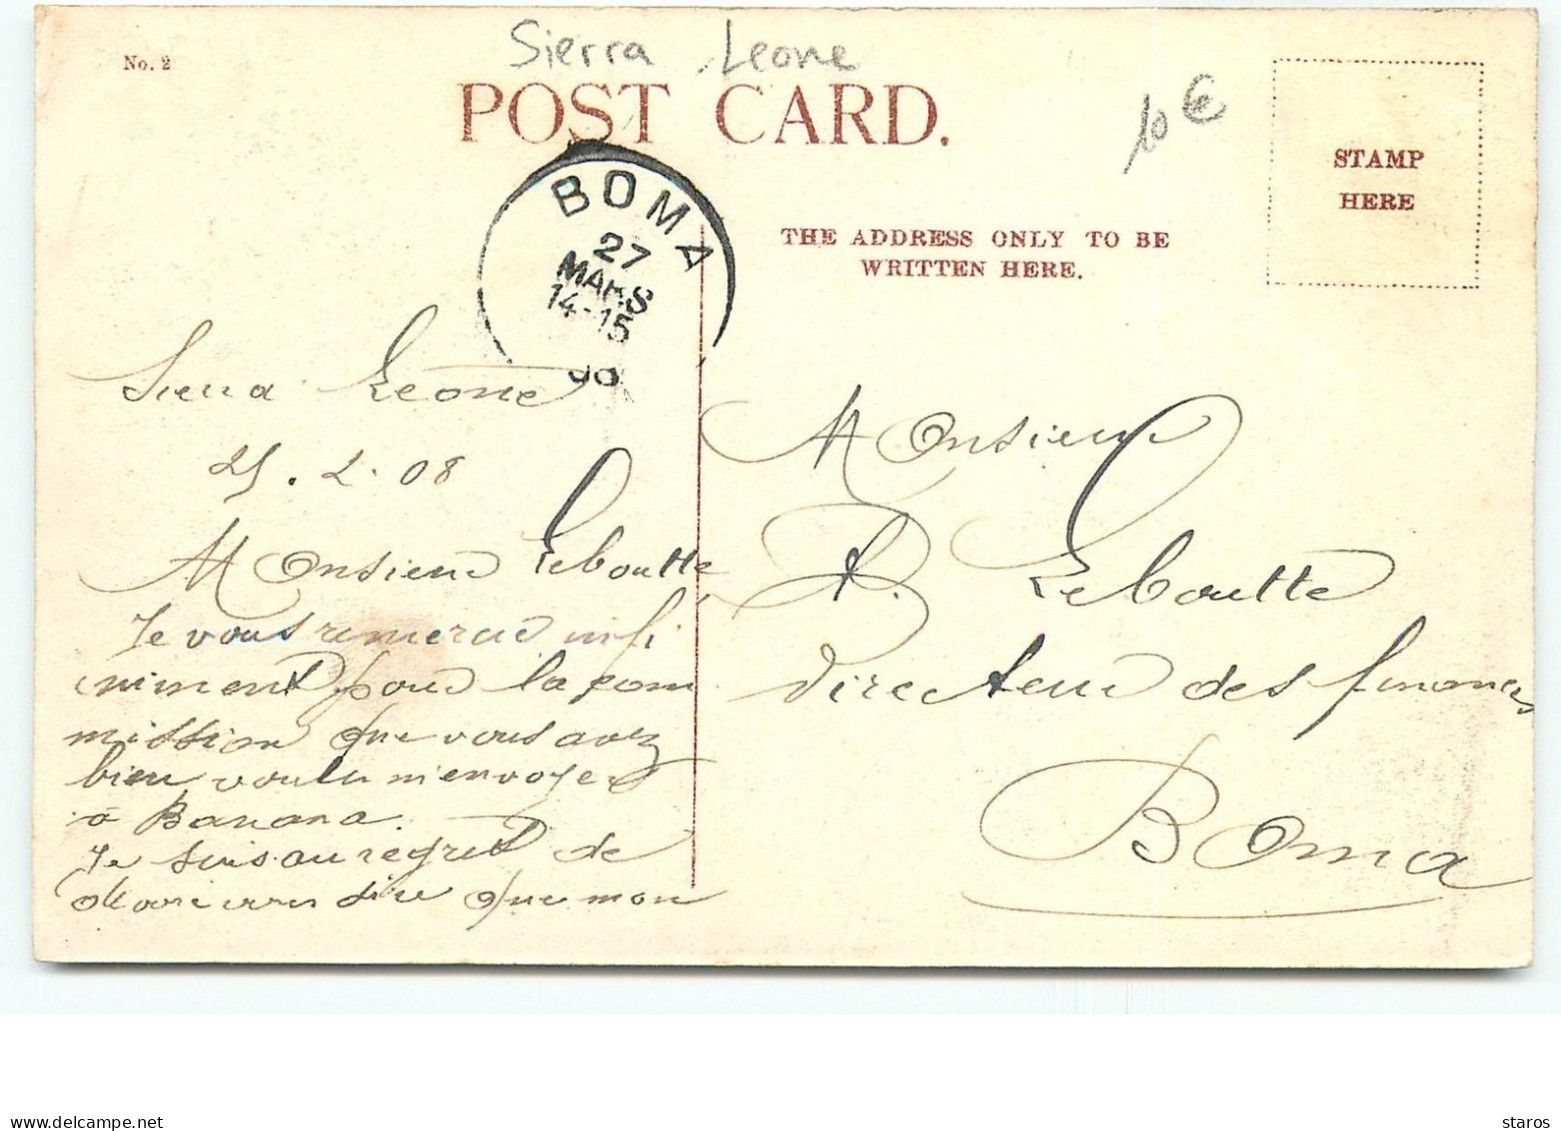 Sierra Leone
No. 2
POST CARD.
10 €
STAMP
HERE
BOMA
27
MARS
14-15
08
THE ADDRESS ONLY TO BE
WRITTEN HERE.
Sierra Leone
25. 2. 08
Monsieur Leboutte
Je vous remercie infi
niment pour la com
mission que vous avez
bien voulu m'envoyer
à Banana.
Je suis au regret de
dire que mon
Monsieur
A. Leboutte
Directeur des finances
Boma
delcampe.net
staros